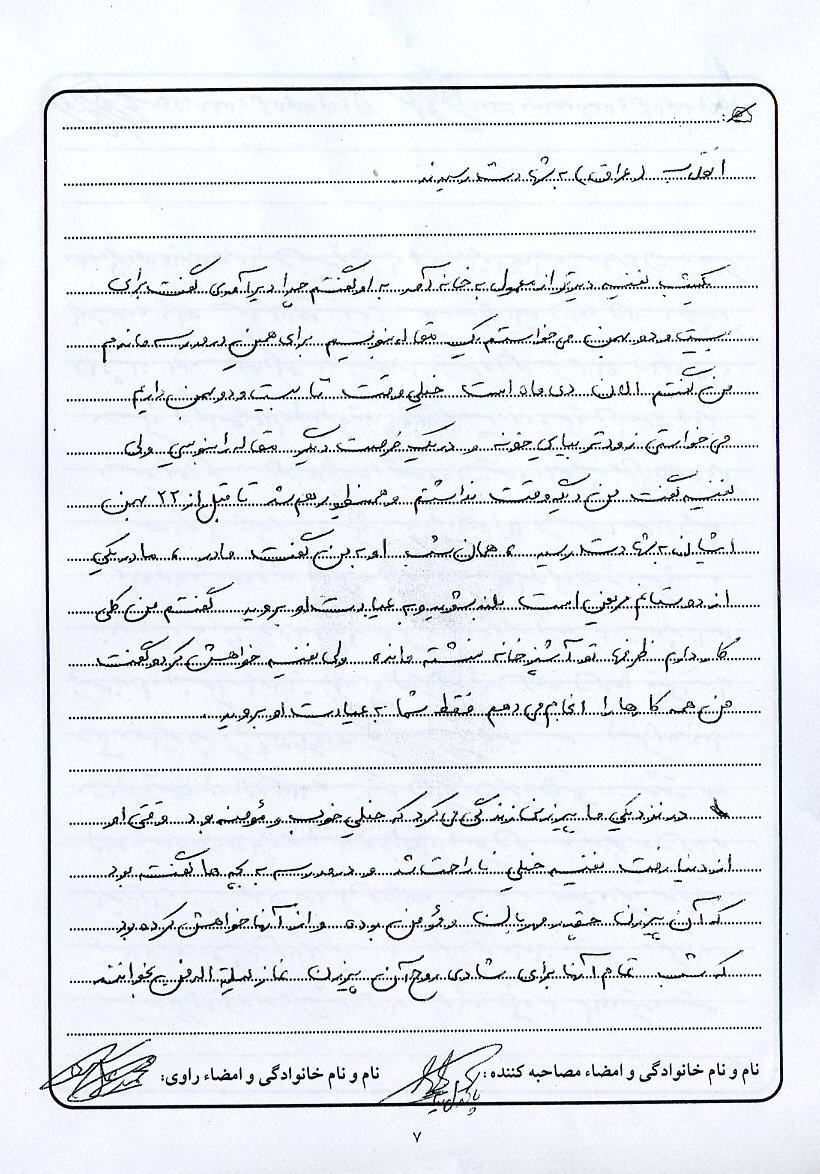 انقلاب (عراق) به شهادت رسیدند
یکشب نفیسه دیرتر از معمول به خانه آمد به او گفتم چرا دیر آمدی گفت برای
بیست و دو بهمن می خواستم یک مقاله بنویسم برای همین در مدرسه ماندم
من گفتم الان دی ماه است خیلی وقت تا بیست و دو بهمن داریم
می خواستی زودتر بیای خونه و در یک فرصت دیگر مقاله را بنویسی ولی
نفیسه گفت من دیگه وقت نداشتم و همینطور هم شد تا قبل از ۲۲ بهمن
ایشان به شهادت رسید ، همان شب او به من گفت مادر ، مادر یکی
از دوستانم مریض است بلند بشوید و به عیادت او بروید گفتم من کلی
کار دارم ظرفها تو آشپزخانه نشسته مانده ولی نفیسه خواهش کرد و گفت
من همه کارها را انجام می دهم فقط شما به عیادت او بروید.
در نزدیکی ما پیرزنی زندگی می کرد که خیلی خوب و مؤمنه بود وقتی او
از دنیا رفت نفیسه خیلی ناراحت شد و در مدرسه به بچه ها گفته بود
که آن پیرزن چقدر مهربان و مؤمن بوده و از آنها خواهش کرده بود
که شب تمام آنها برای شادی روح آن پیرزن نماز لیلة الدفن بخوانند
نام و نام خانوادگی و امضاء مصاحبه کننده : نام و نام خانوادگی و امضاء راوی:
۷